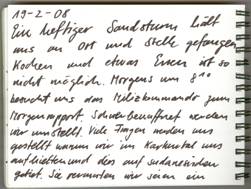 19-2-08
Ein heftiger Sandsturm hält
uns an Ort und Stelle gefangen
Kochen und etwas Essen ist so
nicht möglich. Morgens um 8¹⁰
besucht uns das Milizkommando zum
Morgenrapport. Schwerbewaffnet werden
wir umstellt. Viele Fragen werden uns
gestellt warum wir im
aufhielten und das auf sudanesischem
Gebiet. Sie vermuten wir seien ein